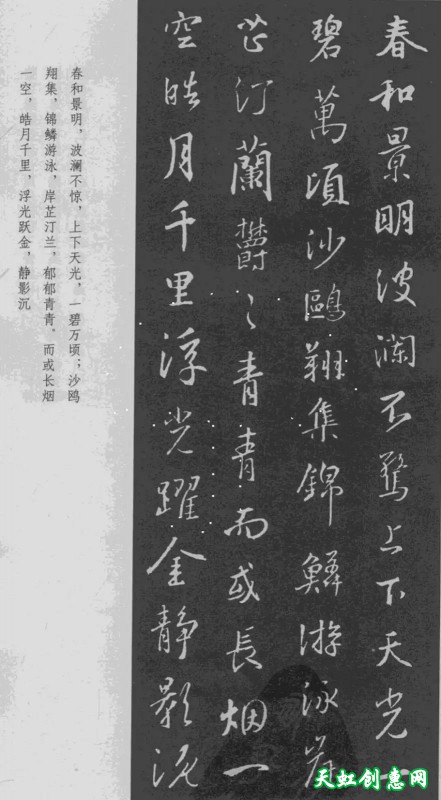 春和景明波澜不驚上下天光一
碧萬頃沙鷗翔集錦鱗游泳岸
芷汀蘭欝〻青青而或長烟一
空皓月千里浮光躍金静影沉
春和景明，波澜不惊，上下天光，一碧万顷；沙鸥
翔集，锦鳞游泳，岸芷汀兰，郁郁青青。而或长烟
一空，皓月千里，浮光跃金，静影沉
天虹创意网